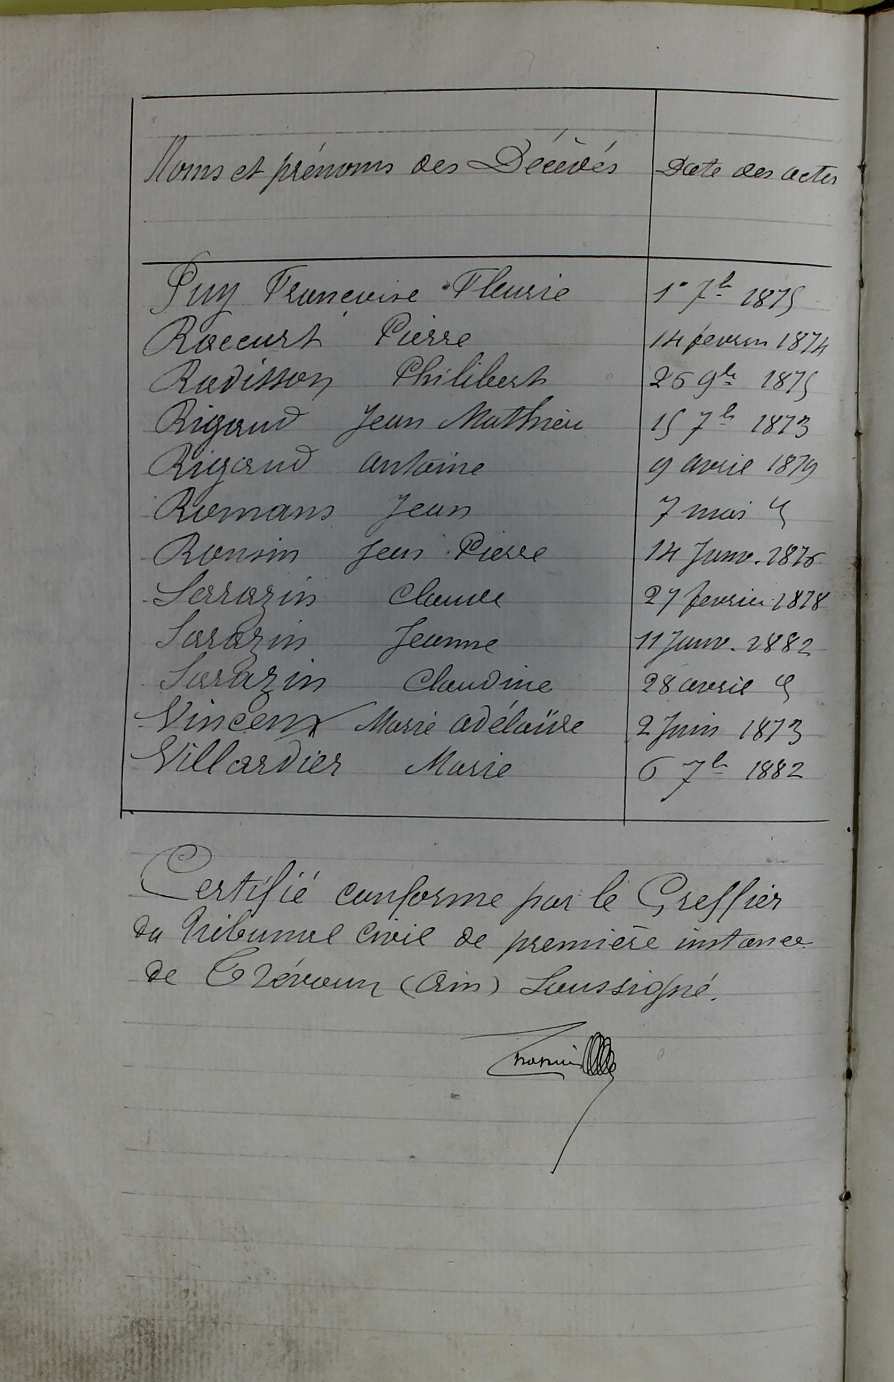 Noms et prénoms des Décédés Date des actes
Puy Francoise Fleurie 1° 7b 1875
Raccurt Pierre 14 fevrier 1874
Radisson Philibert 26 9b 1875
Rigaud Jean Mathieu 15 7b 1873
Rigaud Antoine 9 avril 1879
Romans Jean 7 mai
Ronsin Jean Pierre 14 Janv. 1876
Sarrazin Claude 27 fevrier 1878
Sarazin Jeanne 11 Janv. 1882
Sarazin Claudine 28 avril
Vincent Marie adélaïde 2 Juin 1873
Villardier Marie 6 7b 1882
Certifié conforme par le Greffier
du Tribunal Civil de première instance
de Trévoux (Ain) Soussigné.